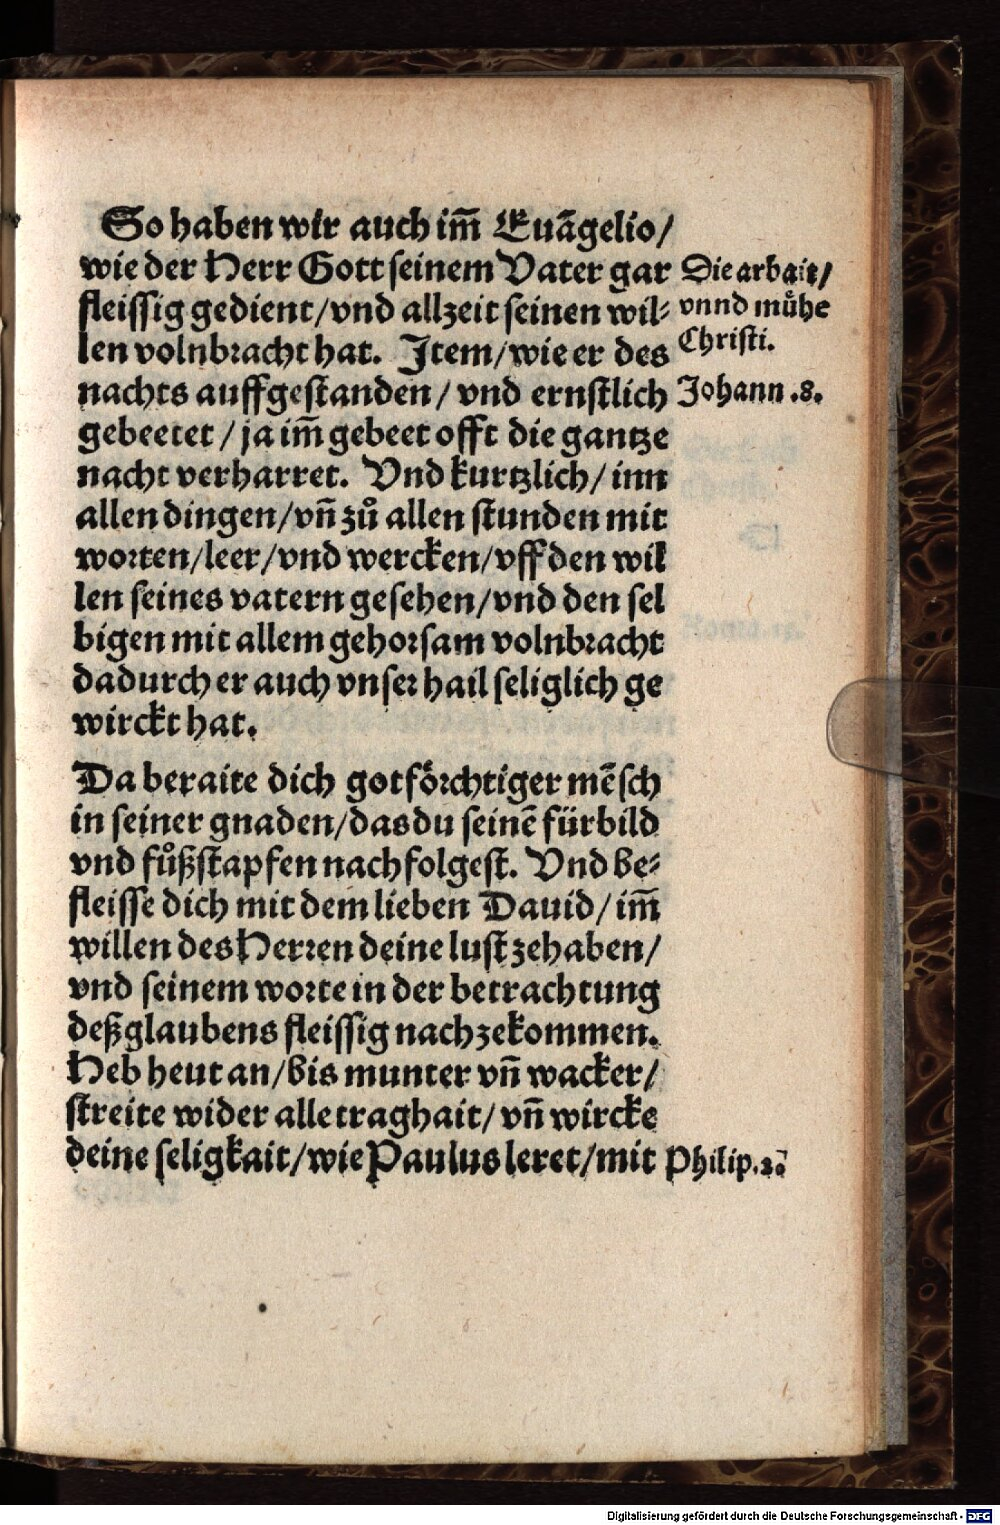 So haben wir auch im̄ Euãgelio/
wie der Herr Gott seinem Vater gar
fleissig gedient/vnd allzeit seinen wil⸗
len volnbracht hat. Item/wie er des
nachts auffgestanden/ vnd ernstlich
gebeetet/ ja im̄ gebeet offt die gantze
nacht verharret. Vnd kurtzlich/ inn
allen dingen/vñ zů allen stunden mit
worten/leer/vnd wercken/vff den wil
len seines vatern gesehen/vnd den sel
bigen mit allem gehorsam volnbracht
dadurch er auch vnser hail seliglich ge
wirckt hat.
Die arbait/
vnnd můhe
Christi.
Johann .8.
Da beraite dich gotförchtiger mẽsch
in seiner gnaden/das du seinẽ fürbild
vnd fůßstapfen nachfolgest. Vnd be⸗
fleisse dich mit dem lieben Dauid/ im̄
willen des Herren deine lust zehaben/
vnd seinem worte in der betrachtung
deß glaubens fleissig nachzekommen.
Heb heut an/bis munter vñ wacker/
streite wider alle traghait/ vñ wircke
deine seligkait/wie Paulus leret/mit
Philip.2.
Digitalisierung gefördert durch die Deutsche Forschungsgemeinschaft - DFG